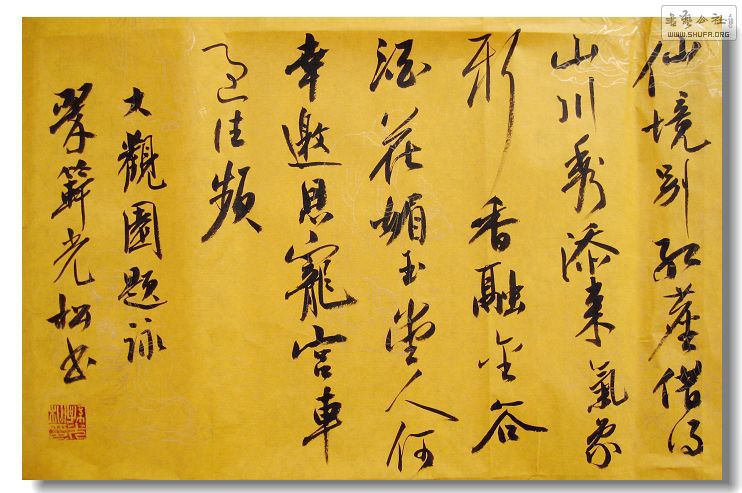 書藝公社
WWW.SHUFA.ORG
仙境别紅塵借得
山川秀添来氣象
新香融金谷
酒花媚玉堂人何
幸邀恩寵宫車
過往頻
大觀園題詠
光松书